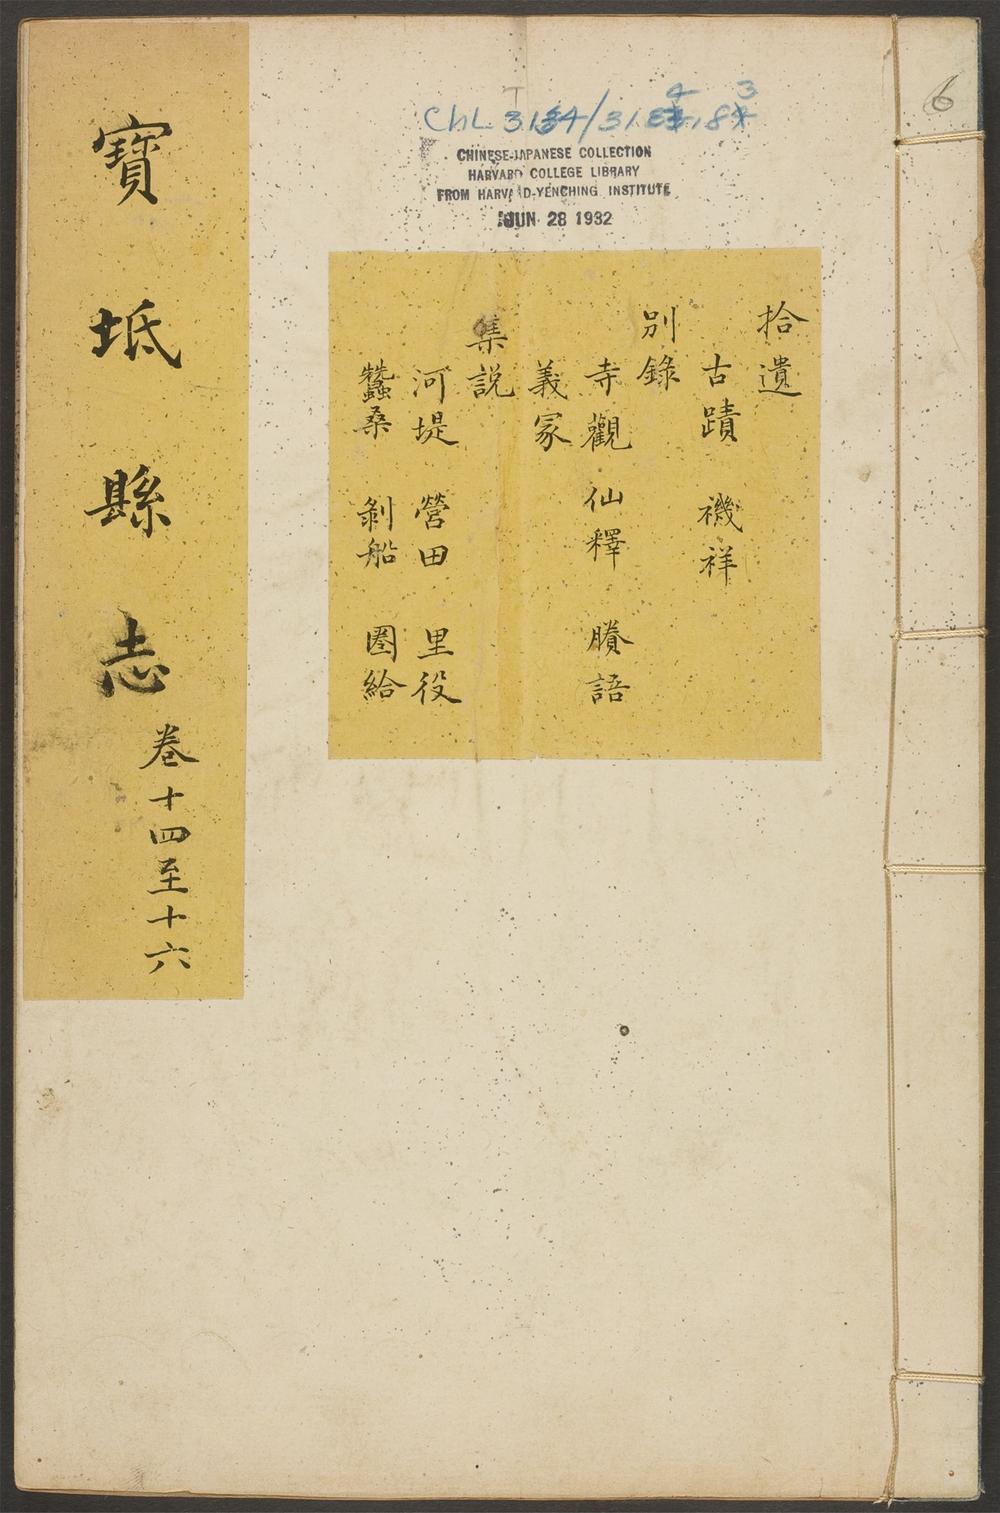 寶坻縣志
卷十四至十六
CHINESE-JAPANESE COLLECTION
HARVARD COLLEGE LIBRARY
FROM HARVARD-YENCHING INSTITUTE
JUN 28 1932
6
拾遺
古蹟 禨祥
別錄
寺觀 仙釋 賸語
義冢
集説
河堤 營田 里役
蠶桑 剝船 圈給